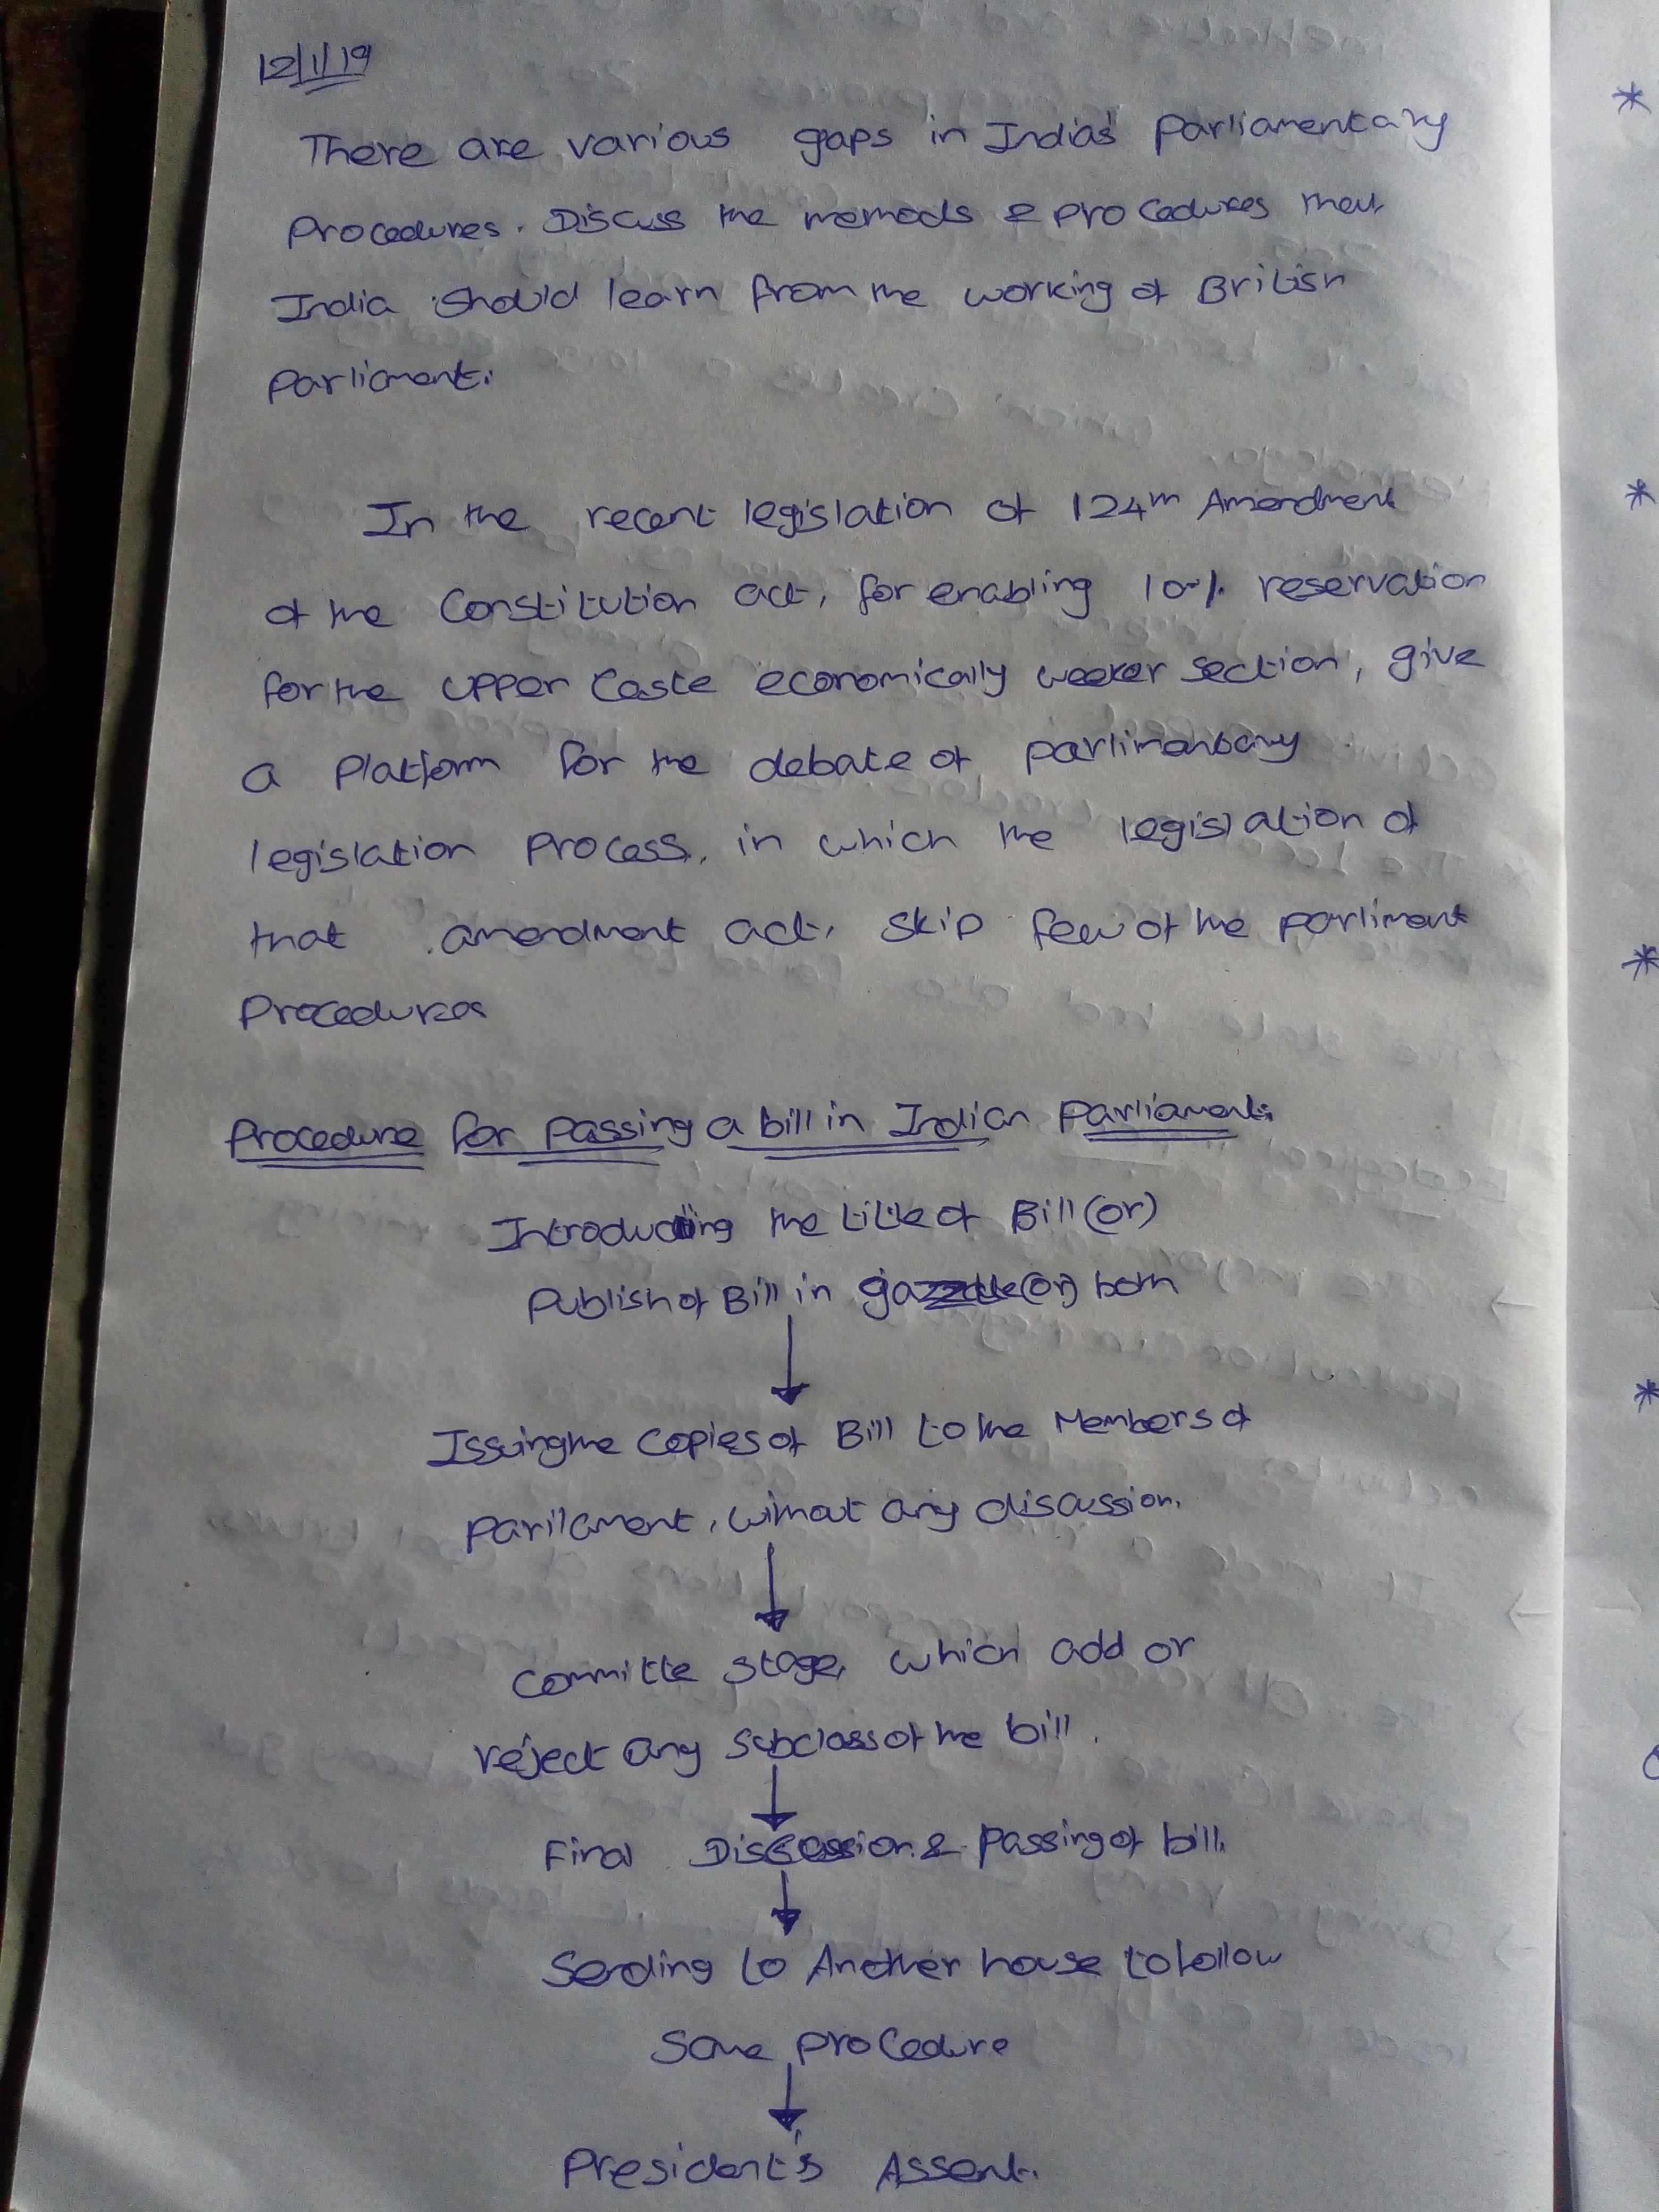 12/1/19
There are various gaps in India's Parliamentary
Procedures. Discuss the methods & procedures that
India should learn from the working of British
Parliament.
In the recent legislation of 124th Amendment
of the Constitution act, for enabling 10% reservation
for the upper Caste economically weeker section, give
a Platform for the debate of parlimentary
legislation Process, in which the legislation of
that amendment act, skip few of the parliment
Procedures
Procedure for Passing a bill in Indian Parliament:
Introducting the title of Bill (or)
Publish of Bill in gazzatte (or) both
Issuing the Copies of Bill to the Members of
parilament, without any discussion.
Committe stage, which add or
reject any Subclass of the bill.
Final Discussion & Passing of bill.
Sending to Another house to follow
Same Procedure
President's Assent.